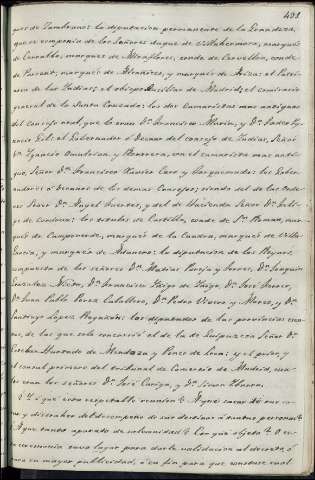 401
que de Zambrano: la diputacion permanente de la Grandeza,
que se componia de los Señores duque de Villahermosa, marqués
de Cerralbo, marqués de Miraflores, conde de Cervellon, conde
de Parsent, marqués de Alcañices, y marqués de Ariza: el Patriar-
ca de las Indias; el obispo auxiliar de Madrid; el comisario
general de la Santa Cruzada: los dos camaristas mas antiguos
del consejo real, que lo eran Dn. Francisco Marin, y Dn. Tadeo Ig-
nacio Gil: el Gobernador ó Decano del consejo de Indias, Señor
Dn. Ignacio Omulrian, y Rourera, con el camarista mas anti-
guo, Señor Dn. Francisco Xavier Caro y Torquemada: los Gober-
nadores ó decanos de los demas Consejos; siendo del de las Orde-
nes Señor Dn. Angel Fuertes, y del de Hacienda Señor Dn. Feli-
pe de Cordova: los titulos de Castilla, conde de Sn. Roman, mar-
qués de Campoverde, marqués de la Cuadra, marqués de Villa-
García, y marqués de Adanero: la diputacion de los Reynos,
compuesta de los señores Dn. Matias Pareja y Torres, Dn. Joaquin
Gonzalez Nieto, Dn. Francisco Iñigo de Iñigo, Dn. José Ferrer,
Dn. Juan Pablo Perez Caballero, Dn. Pedro Vivero y Moreo, y Dn.
Santiago Lopez Regañon: los diputados de las provincias esen-
tas, de las que solo concurrió el de la de Guipuzcoa Señor Dn.
Esteban Hurtado de Mendoza y Ponce de Leon: y el prior, y
el consul primero del tribunal de Comercio de Madrid, cua-
les eran los señores Dn. José Cariga, y Dn. Simon Ybarra.
¿Y á que esta respetable reunion? ¿A que sacar de sus ca-
sas y distraher del desempeño de sus destinos á tantas personas?
¿A que tanto aparato de solemnidad? ¿Con que objeto? O es-
ta ceremonia tuvo lugar para darle validacion al decreto, ó
para su mayor publicidad, ó en fin para que constase cual